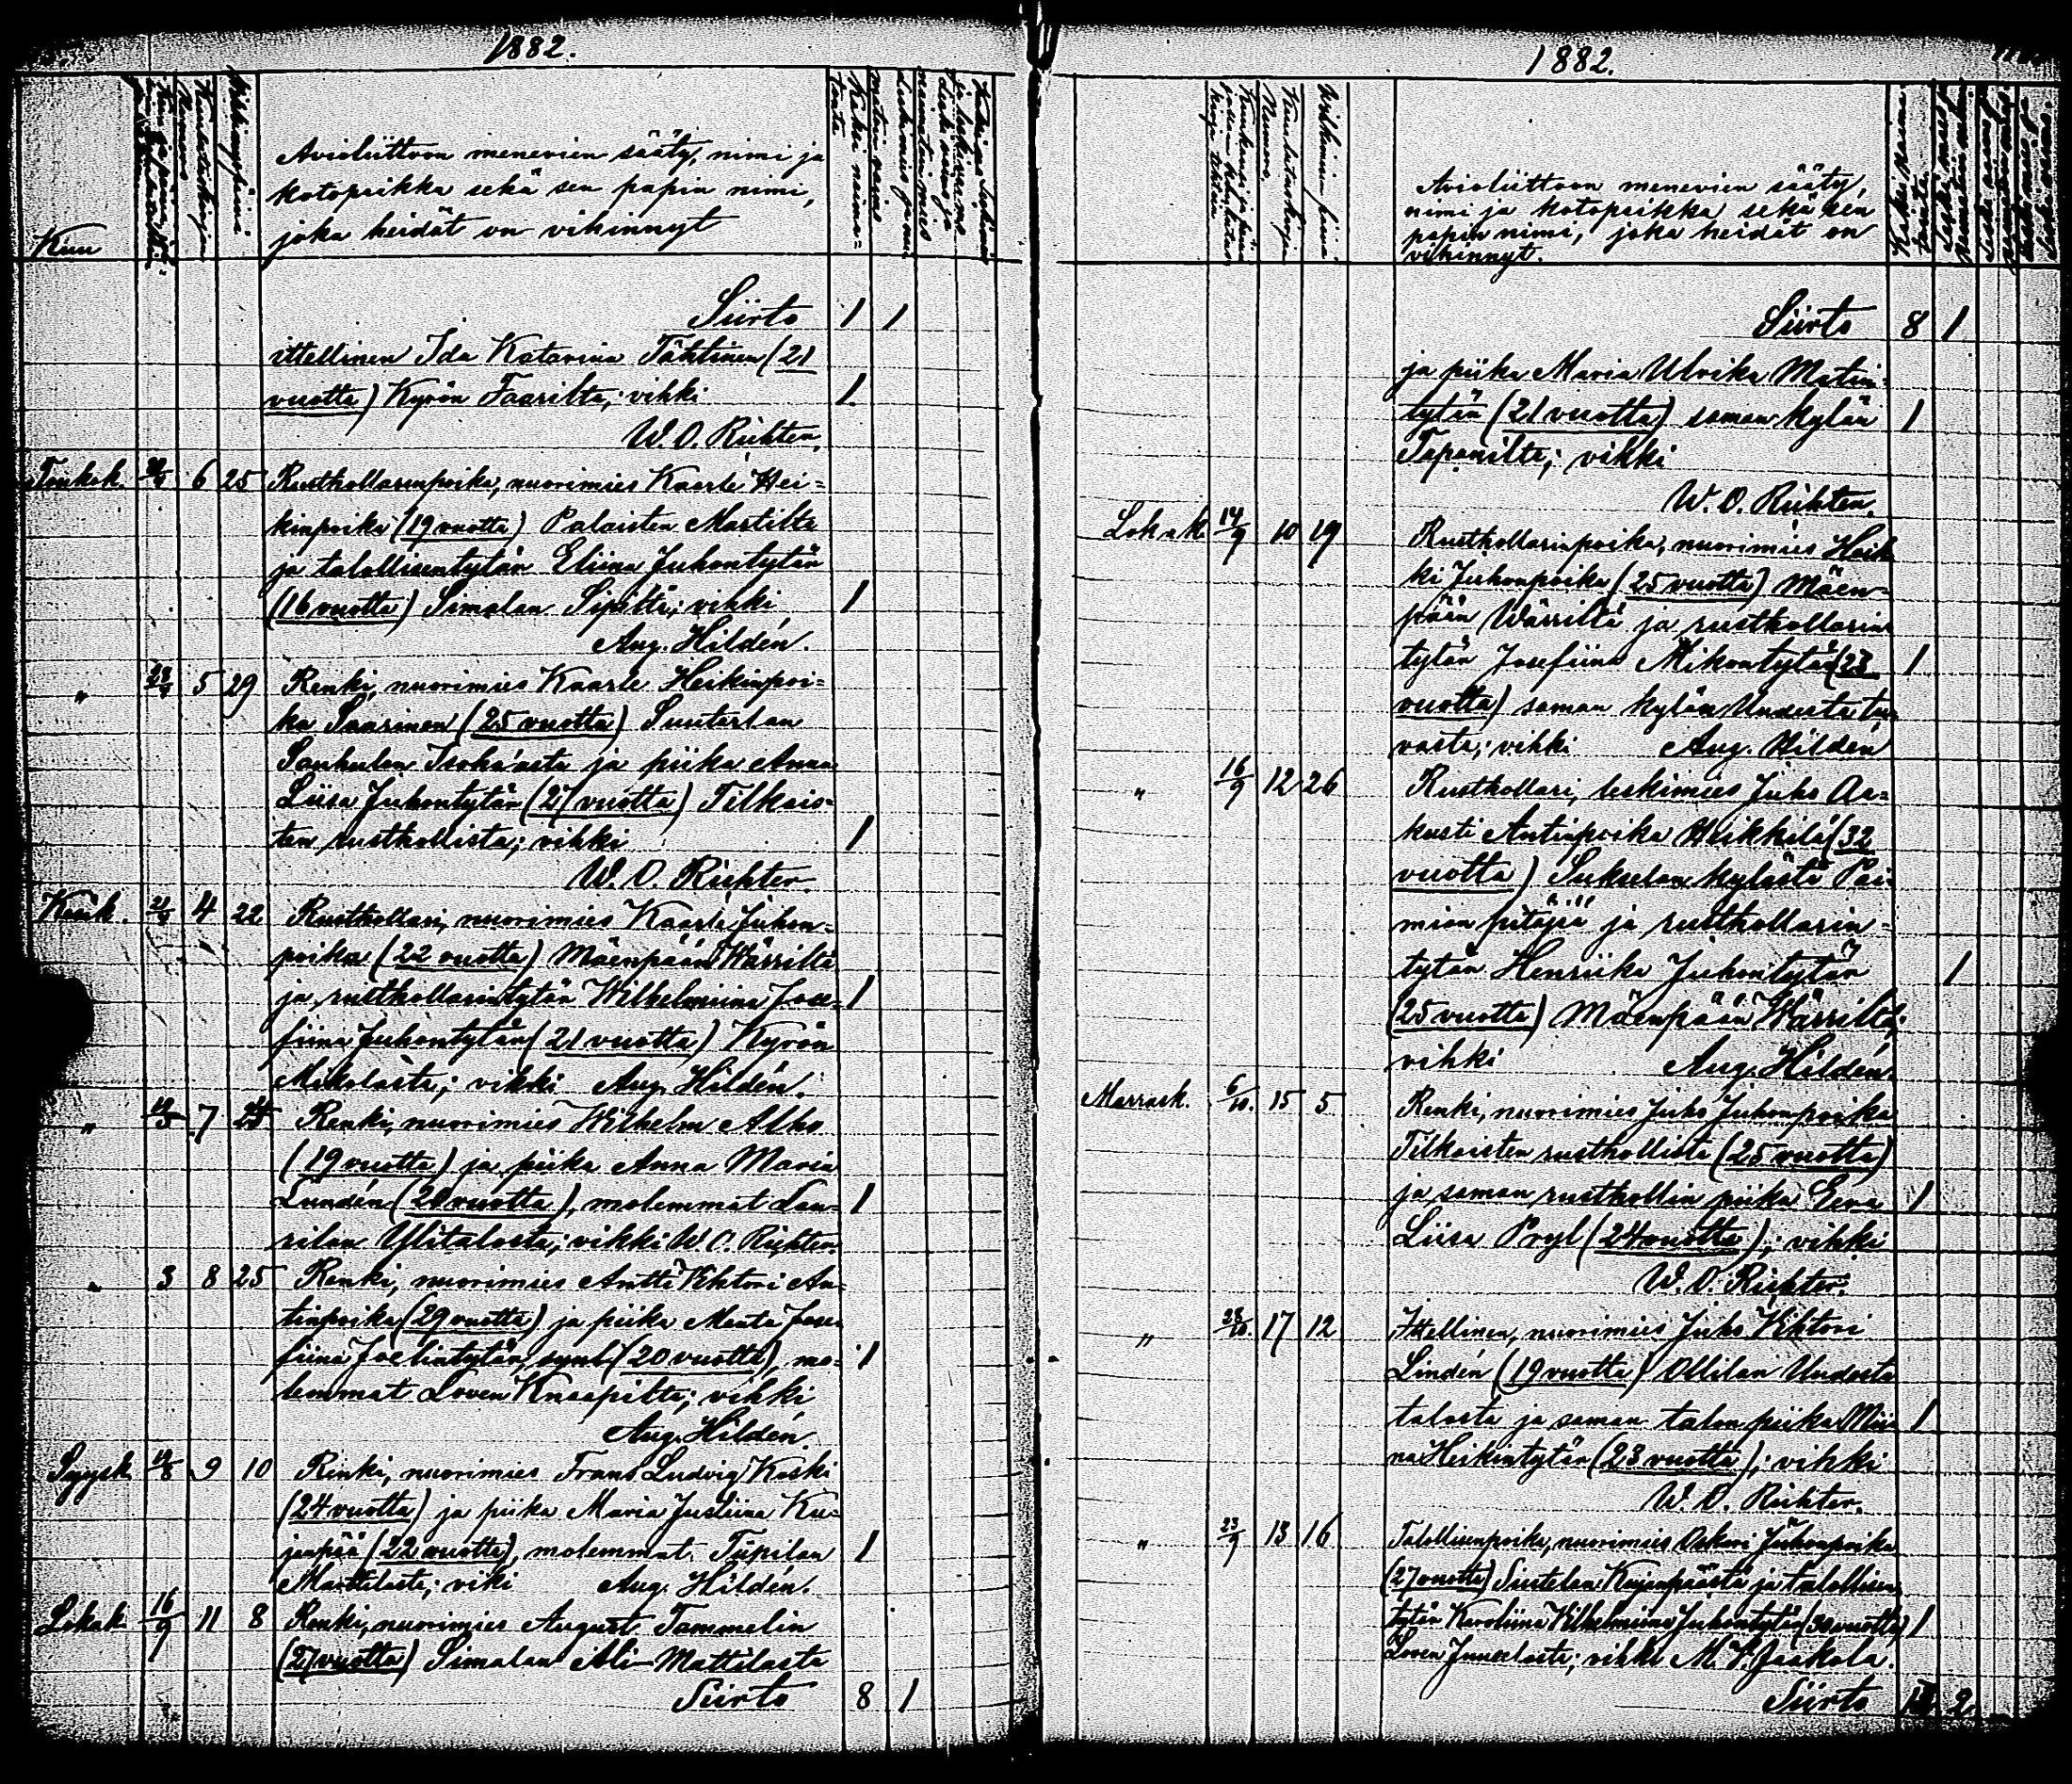 1882.
Kuu
Avioliittoon menevien sääty, nimi ja
kotopaikka sekä sen papin nimi,
joka heidät on vihinnyt
Siirto 1 1
ittellinen Ida Katarina Tähtinen (21
vuotta) Kyrön Faarilta; vihki 1.
W. O. Richter.
Toukok. 6 25 Rusthollarinpoika, nuorimies Kaarle Hei=
kinpoika (19 vuotta) Palaisten Martilta
ja talollisentytär Eliina Juhontytär
(16 vuotta) Simalan Sipiltä; vihki 1
Aug. Hildén.
" 5 29 Renki, nuorimies Kaarle Heikinpoi=
ka Saarinen (25 vuotta) Suutarlan
Isoha'asta ja piika Anna
Liisa Juhontytär (27 vuotta) Tilkais=
ten rusthollista; vihki 1
W. O. Richter.
4 22 Rusthollari, nuorimies Kaarle Juhon=
poika (22 vuotta) Mäenpään Wärriltä
ja rusthollarintytär Wilhelmiina Jose= 1
fiina Juhontytär (21 vuotta) Kyrön
Mikolasta; vihki Aug. Hildén.
" 7 Renki, nuorimies Wilhelm Alho
(19 vuotta) ja piika Anna Maria
Lundén (20 vuotta), molemmat Lau= 1
rilan Ylitalosta; vihki W. O. Richter.
" 3 8 25 Renki, nuorimies Antti Viktori An=
tinpoika (29 vuotta) ja piika Manta Jose=
fiina Joelintytär, (20 vuotta), mo= 1
lemmat Loven Knaapilta; vihki
Aug. Hildén.
Syysk. 9 10 Renki, nuorimies Frans Ludvig Koski
(24 vuotta) ja piika Maria Justiina Ku=
janpää (22 vuotta), molemmat Tiipilän 1
Marttilasta; viki Aug. Hildén.
Lokak. 16/9 11 8 Renki, nuorimies August Tammelin
(27 vuotta) Simalan Ali-Mattilasta
Siirto 8 1
1882.
Avioliittoon menevien sääty,
nimi ja kotopaikka sekä sen
papin nimi, joka heidät on
vihinnyt.
Siirto 8 1
ja piika Maria Ulrika Matin=
tytär (21 vuotta) saman kylän 1
Tapanilta; vihki
W. O. Richter.
Lokak. 14/9 10 19 Rusthollarinpoika, nuorimies Heik
ki Juhonpoika (25 vuotta) Mäen=
pään Wärriltä ja rusthollarin
tytär Josefiina Mikontytär (23 1
vuotta) saman kylän Uudesta tu
vasta; vihki Aug. Hildén
" 16/9 12 26 Rusthollari, leskimies Juho Au=
kusti Antinpoika Heikkilä (32
vuotta) Sukselan kylästä Pai
mion pitäjää ja rusthollarin=
tytär Henriika Juhontytär 1
(25 vuotta) Mäenpään Wärriltä;
vihki Aug. Hildén.
Marrask. 6/10. 15 5 Renki, nuorimies Juho Juhonpoika
Tilkaisten rusthollista (25 vuotta)
ja saman rusthollin piika Eeva 1
Liisa Pryl (24 vuotta); vihki
W. O. Richter.
" 17 12 Ittellinen, nuorimies Juho Viktori
Lindén (19 vuotta) Ollilan Uudesta
talosta ja saman talon piika Mii 1
na Heikintytär (23 vuotta); vihki
W. O. Richter.
" 23/9 13 16 Talollisenpoika, nuorimies Oskari Juhonpoika
(27 vuotta) Kujanpäästä ja talollisen
tytär Karoliina Vilhelmiina Juhontytär (30 vuotta) 1
Loven Junnolasta; vihki M. V. Jaakola.
Siirto 2